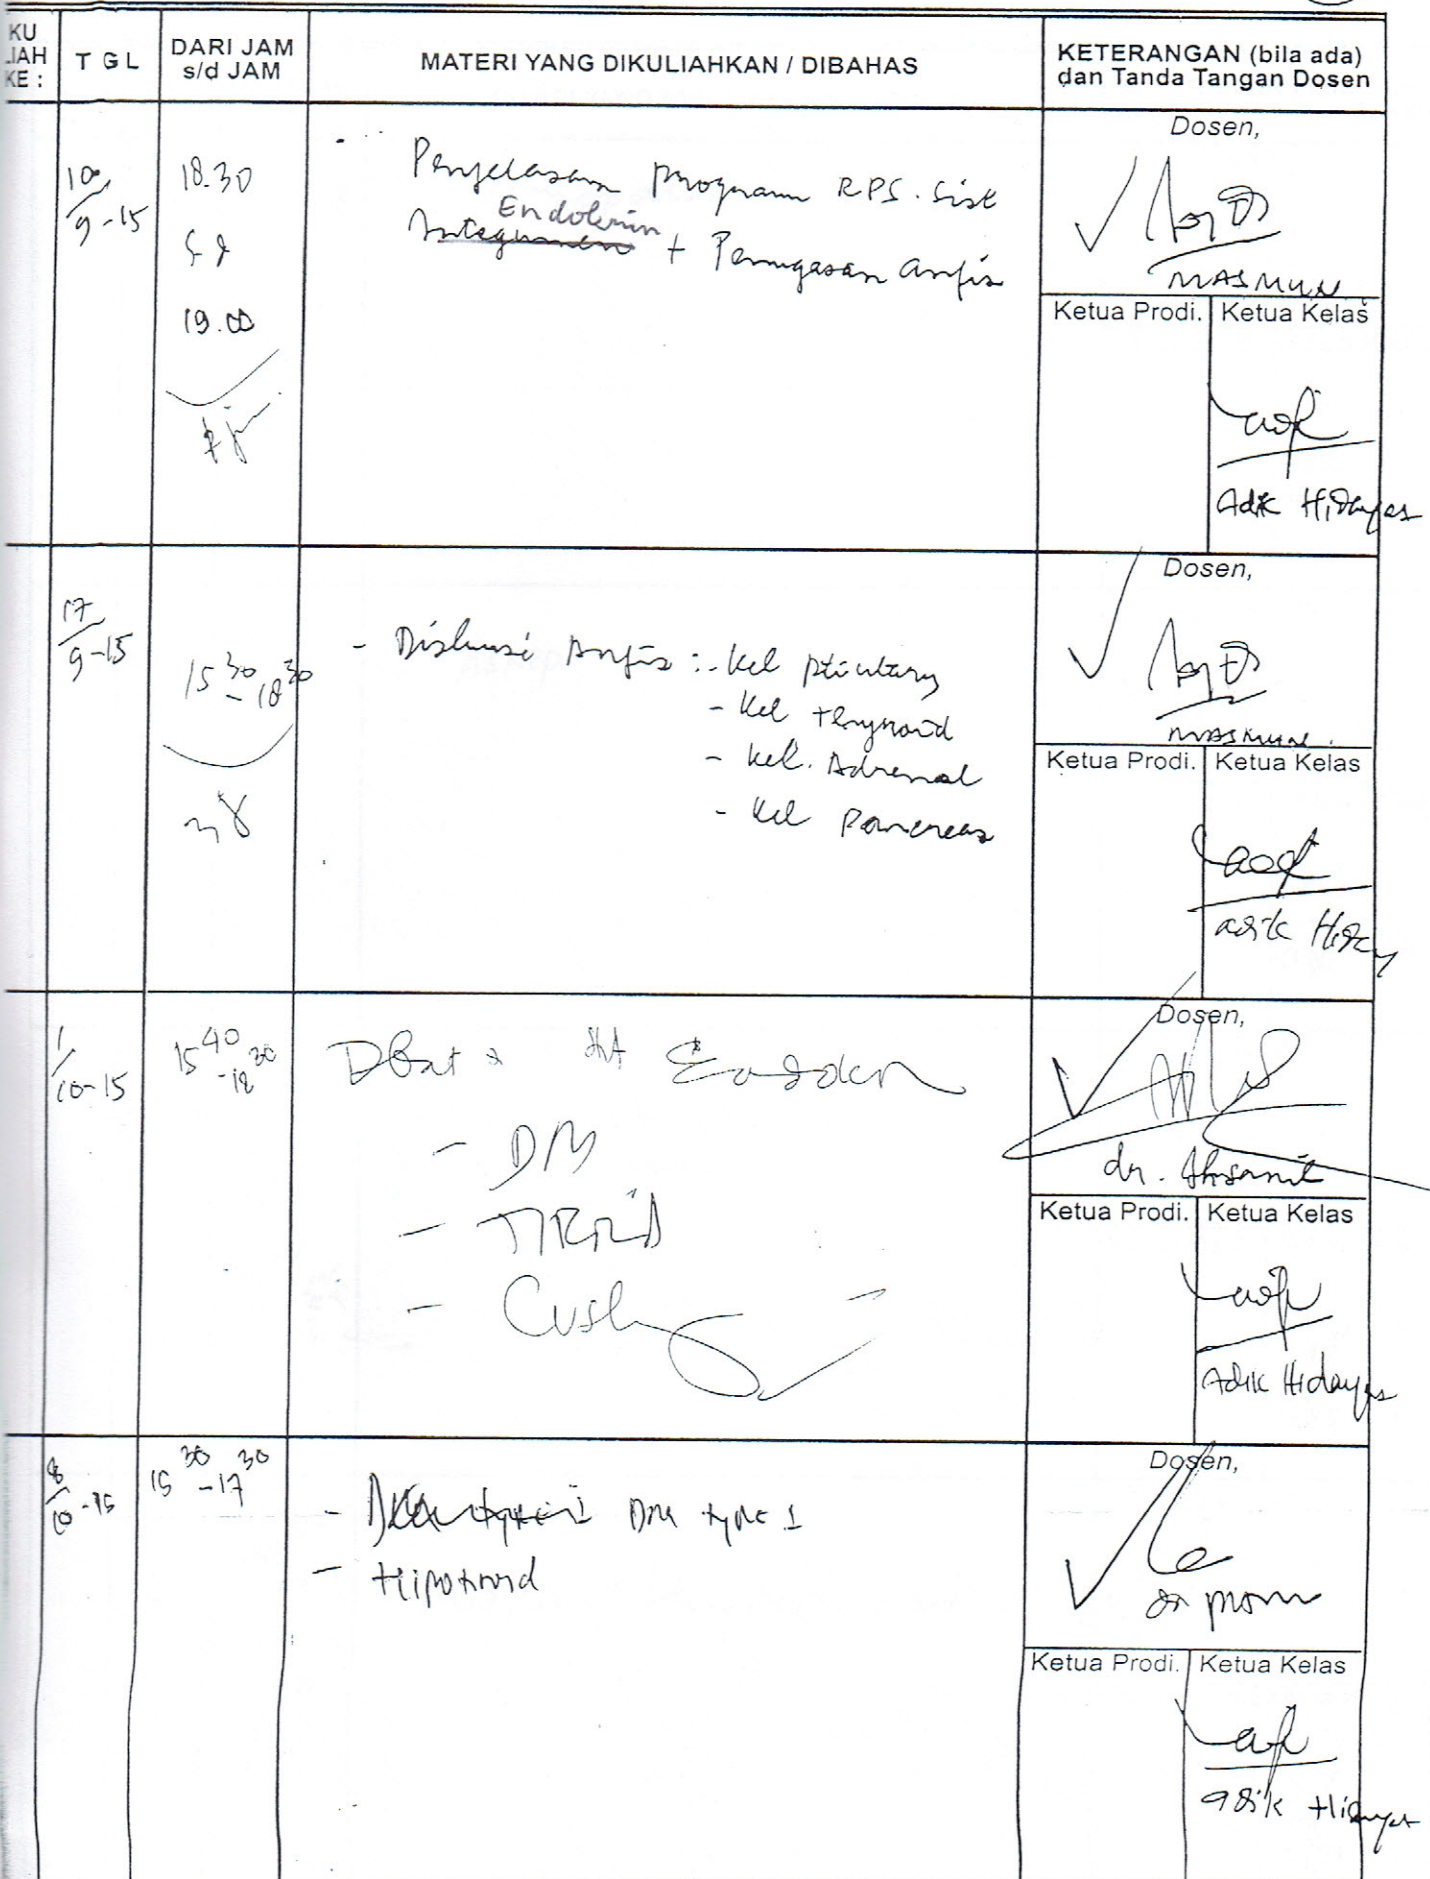 KU
LIAH
KE :
T G L
DARI JAM
s/d JAM
MATERI YANG DIKULIAHKAN / DIBAHAS
KETERANGAN (bila ada)
dan Tanda Tangan Dosen
10/9-15
18.30
s d
19.00
Penjelasan program RPS. Sist
Endokrin
Integumen + Penugasan Anfis
Dosen,
MASMUN
Ketua Prodi.
Ketua Kelas
Adik Hidayat
17/9-15
15 30 - 18 30
- Diskusi Anfis : - Kel
- Kel thyroid
- Kel. Adrenal
- Kel Pancreas
Dosen,
MASMUN
Ketua Prodi.
Ketua Kelas
adik Hiday
1/10-15
15 40 - 18 30
- DM
- Cush
Dosen,
dr.
Ketua Prodi.
Ketua Kelas
Adik Hidayat
8/10-15
15 30 - 17 30
- DM type 1
- Hipotiroid
Dosen,
dr
Ketua Prodi.
Ketua Kelas
adik Hidayat